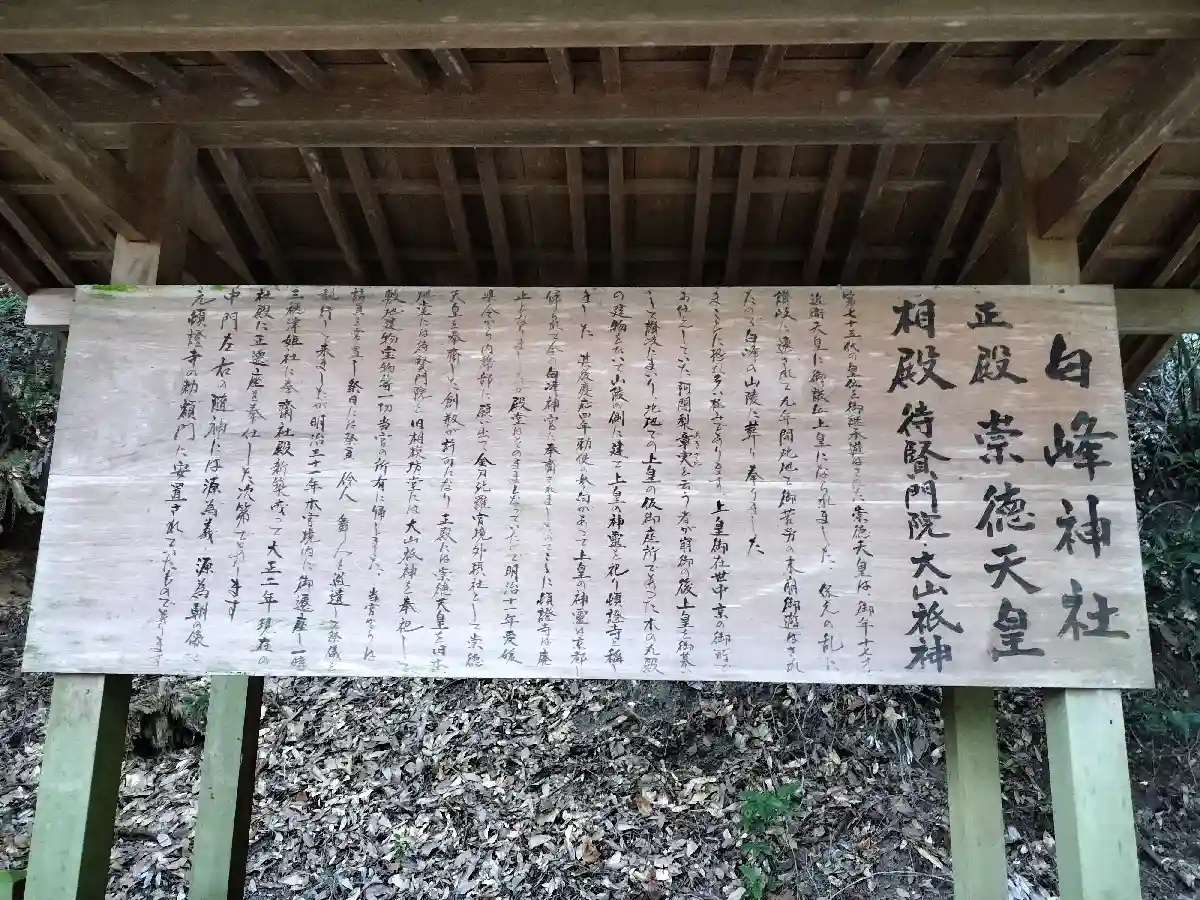 白峰神社
正殿 崇徳天皇
相殿 待賢門院 大山祇神
第七十五代の皇位を御継承遊ばされた崇徳天皇は、御年二十七才
近衛天皇に御譲位上皇になられました。保元の乱に
讃岐に遷られて九年間此地で御苦労の末崩御遊ばされ
たので白峰の山陵に葬り奉りました
上皇御在世中京の御所
お仕えしていた阿闍梨章実と云う者が崩御の後上皇を御慕
いして讃岐にまいり、此地で上皇の仮御座所であった木の丸殿
の建物を以て山陵の側に建て上皇の神霊を祀り頓證寺と称
しました 其の後慶応四年勅使の参向があって上皇の神霊は京都
帰られて今の白峰神宮に奉斎されました
殿堂は其のままとなっていたので明治十一年愛媛
県令より内務部に願い出て金刀比羅宮境外摂社として崇徳
天皇を奉斎した 創祀が許可になり正殿には崇徳天皇を旧本
地堂には待賢門院を旧相模坊堂には大山祇神を奉祀し
敷地建物宝物等一切当宮の所有に帰しました、当宮よりは
祭日には祭員 伶人 舞人を
執行し奉ましたが明治三十一年本宮境内に御遷座し一時
三穂津姫社に奉齋社殿新築成って大正二年現在の
社殿に正遷座を奉仕した次第であります
中門左右の随神には源為義 源為朝の像で
元頓證寺の勅額門に安置されていたものであります